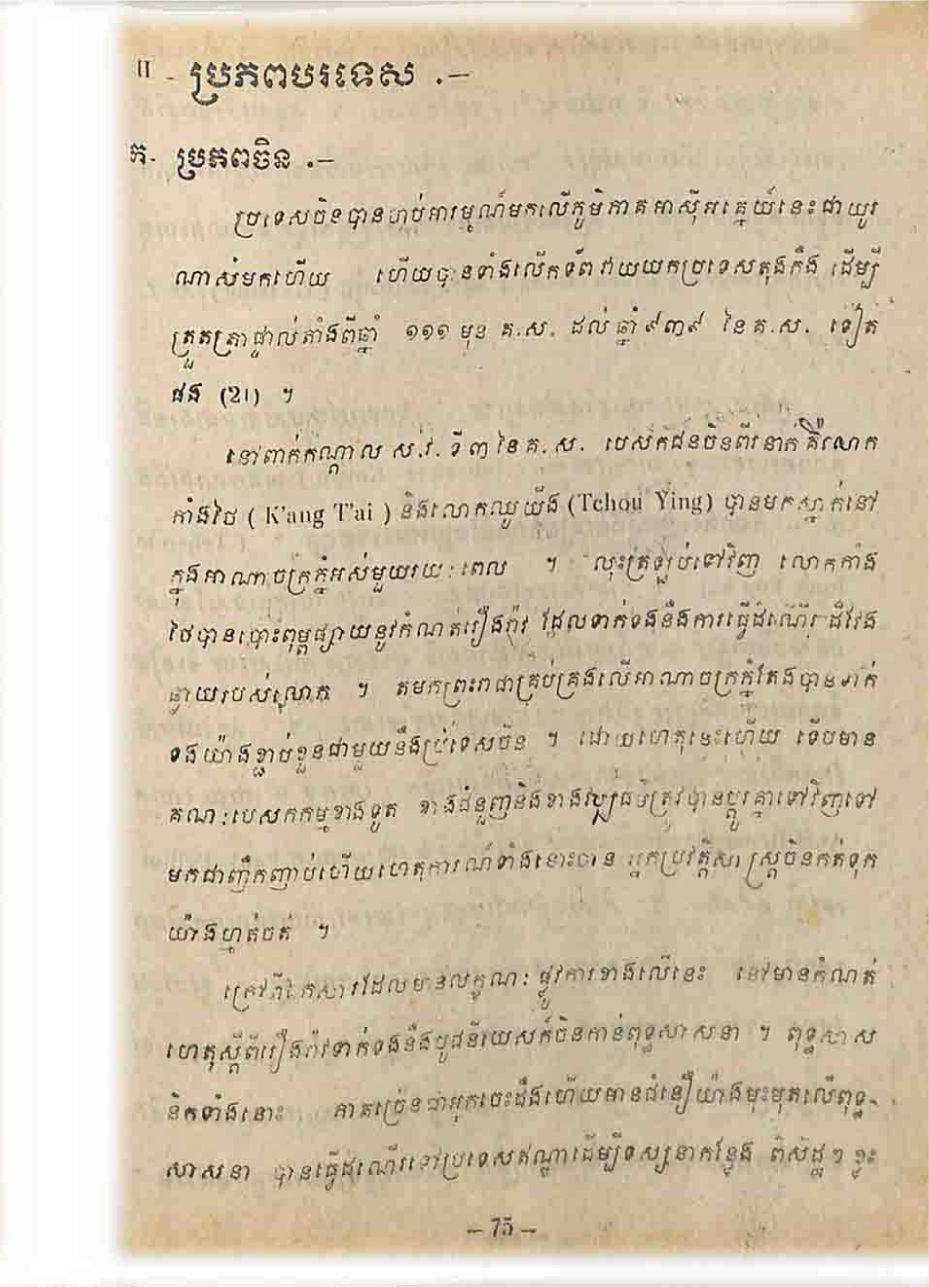 II - ប្រភពបរទេស .–
ក- ប្រភពចិន .–
ប្រទេសចិនបានចាប់អារម្មណ៍មកលើភូមិភាគអាស៊ីអគ្នេយ៍នេះជាយូរ
ណាស់មកហើយ ហើយបានទាំងលើកទ័ពវាយយកប្រទេសតុងកឹង ដើម្បី
ត្រួតត្រាផ្ទាល់តាំងពីឆ្នាំ ១១១ មុន គ.ស. ដល់ឆ្នាំ ៩៣៩ នៃគ.ស. ទៀត
ផង (21) ។
នៅពាក់កណ្ដាល ស.វ. ទី ៣ នៃគ. ស. បេសកជនចិនពីរនាក់ គឺលោក
កាំងថៃ ( K'ang T'ai ) និងលោកឈូយីង (Tchou Ying) បានមកស្នាក់នៅ
ក្នុងអាណាចក្រភ្នំអស់មួយរយៈពេល ។ លុះត្រឡប់ទៅវិញ លោកកាំង
ថៃបានបោះពុម្ពផ្សាយនូវកំណត់រឿងរ៉ាវ ដែលទាក់ទងនឹងការធ្វើដំណើរដ៏វែង
ឆ្ងាយរបស់លោក ។ តមកព្រះរាជាគ្រប់គ្រងលើអាណាចក្រភ្នំតែងបានទាក់
ទងយ៉ាងខ្ជាប់ខ្ជួនជាមួយនឹងប្រទេសចិន ។ ដោយហេតុនេះហើយ ទើបមាន
គណៈបេសកកម្មខាងទូត ខាងជំនួញនិងខាងវប្បធម៌ត្រូវបានប្ដូរគ្នាទៅវិញទៅ
មកជាញឹកញាប់ហើយហេតុការណ៍ទាំងនោះបាន អ្នកប្រវត្តិសាស្ត្រចិនកត់ទុក
យ៉ាងហ្មត់ចត់ ។
ក្រៅពីឯកសារដែលមានលក្ខណៈផ្លូវការខាងលើនេះ នៅមានកំណត់
ហេតុស្ដីពីរឿងរ៉ាវទាក់ទងនឹងបូជនីយេសក៍ចិនកាន់ពុទ្ធសាសនា ។ ពុទ្ធសាស
និកទាំងនោះ ភាគច្រើនជាអ្នកចេះដឹងហើយមានជំនឿយ៉ាងមុះមុតលើពុទ្ធ-
សាសនា បានធ្វើដំណើរទៅប្រទេសឥណ្ឌាដើម្បីទស្សនាកន្លែង ពិសិដ្ឋៗ ខ្លះ
– 75 –